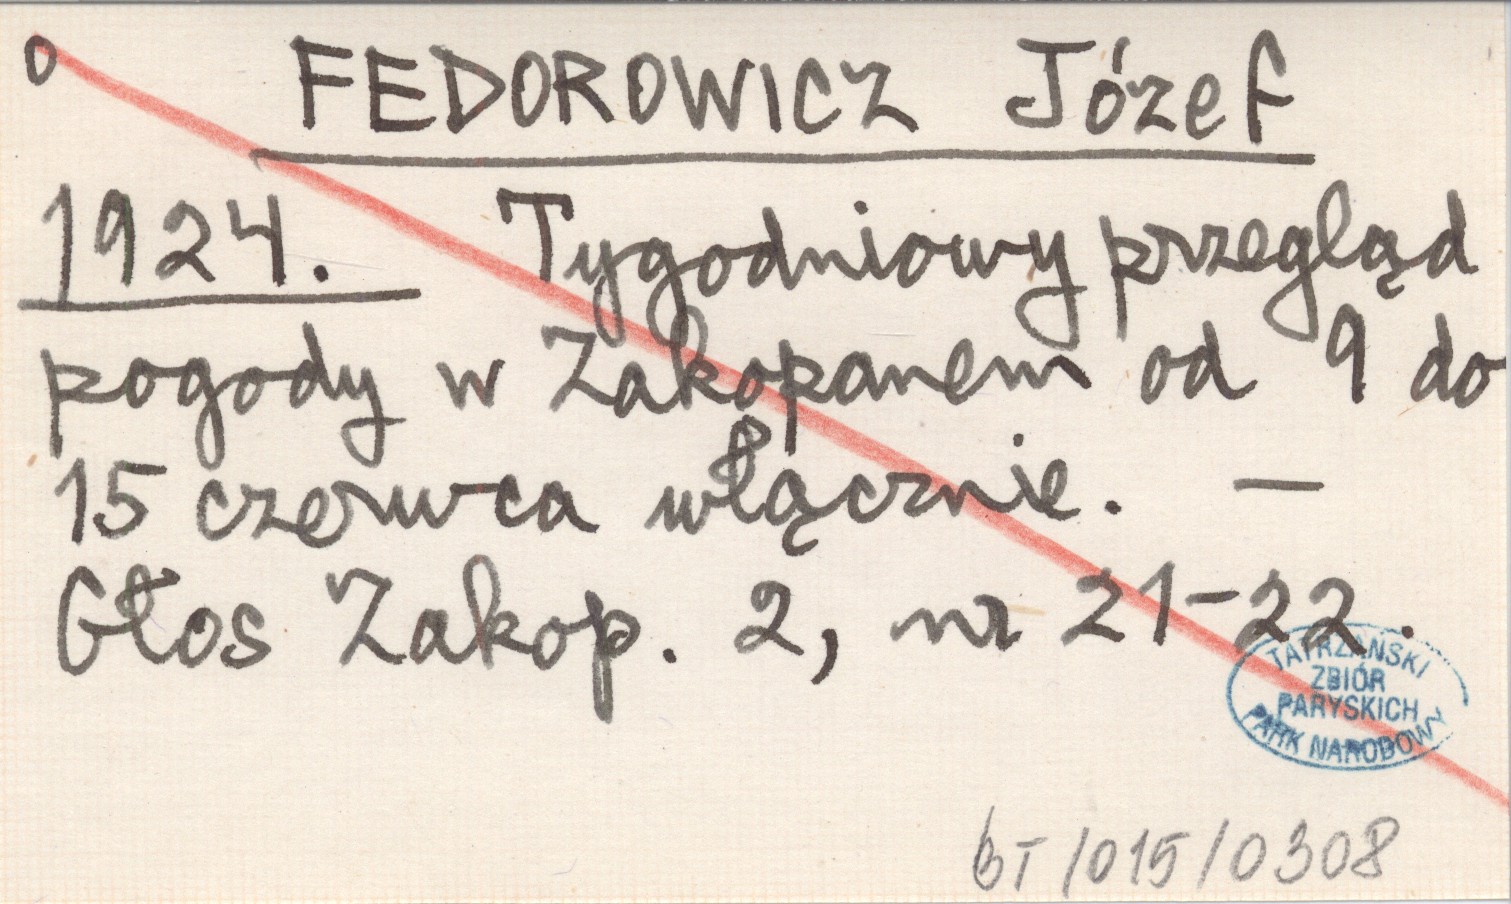 o
FEDOROWICZ Józef
1924. Tygodniowy przegląd
pogody w Zakopanem od 9 do
15 czerwca włącznie. —
Głos Zakop. 2, nr 21-22.
TATRZAŃSKI
ZBIÓR
PARYSKICH
PARK NARODOWY
BT/015/0308